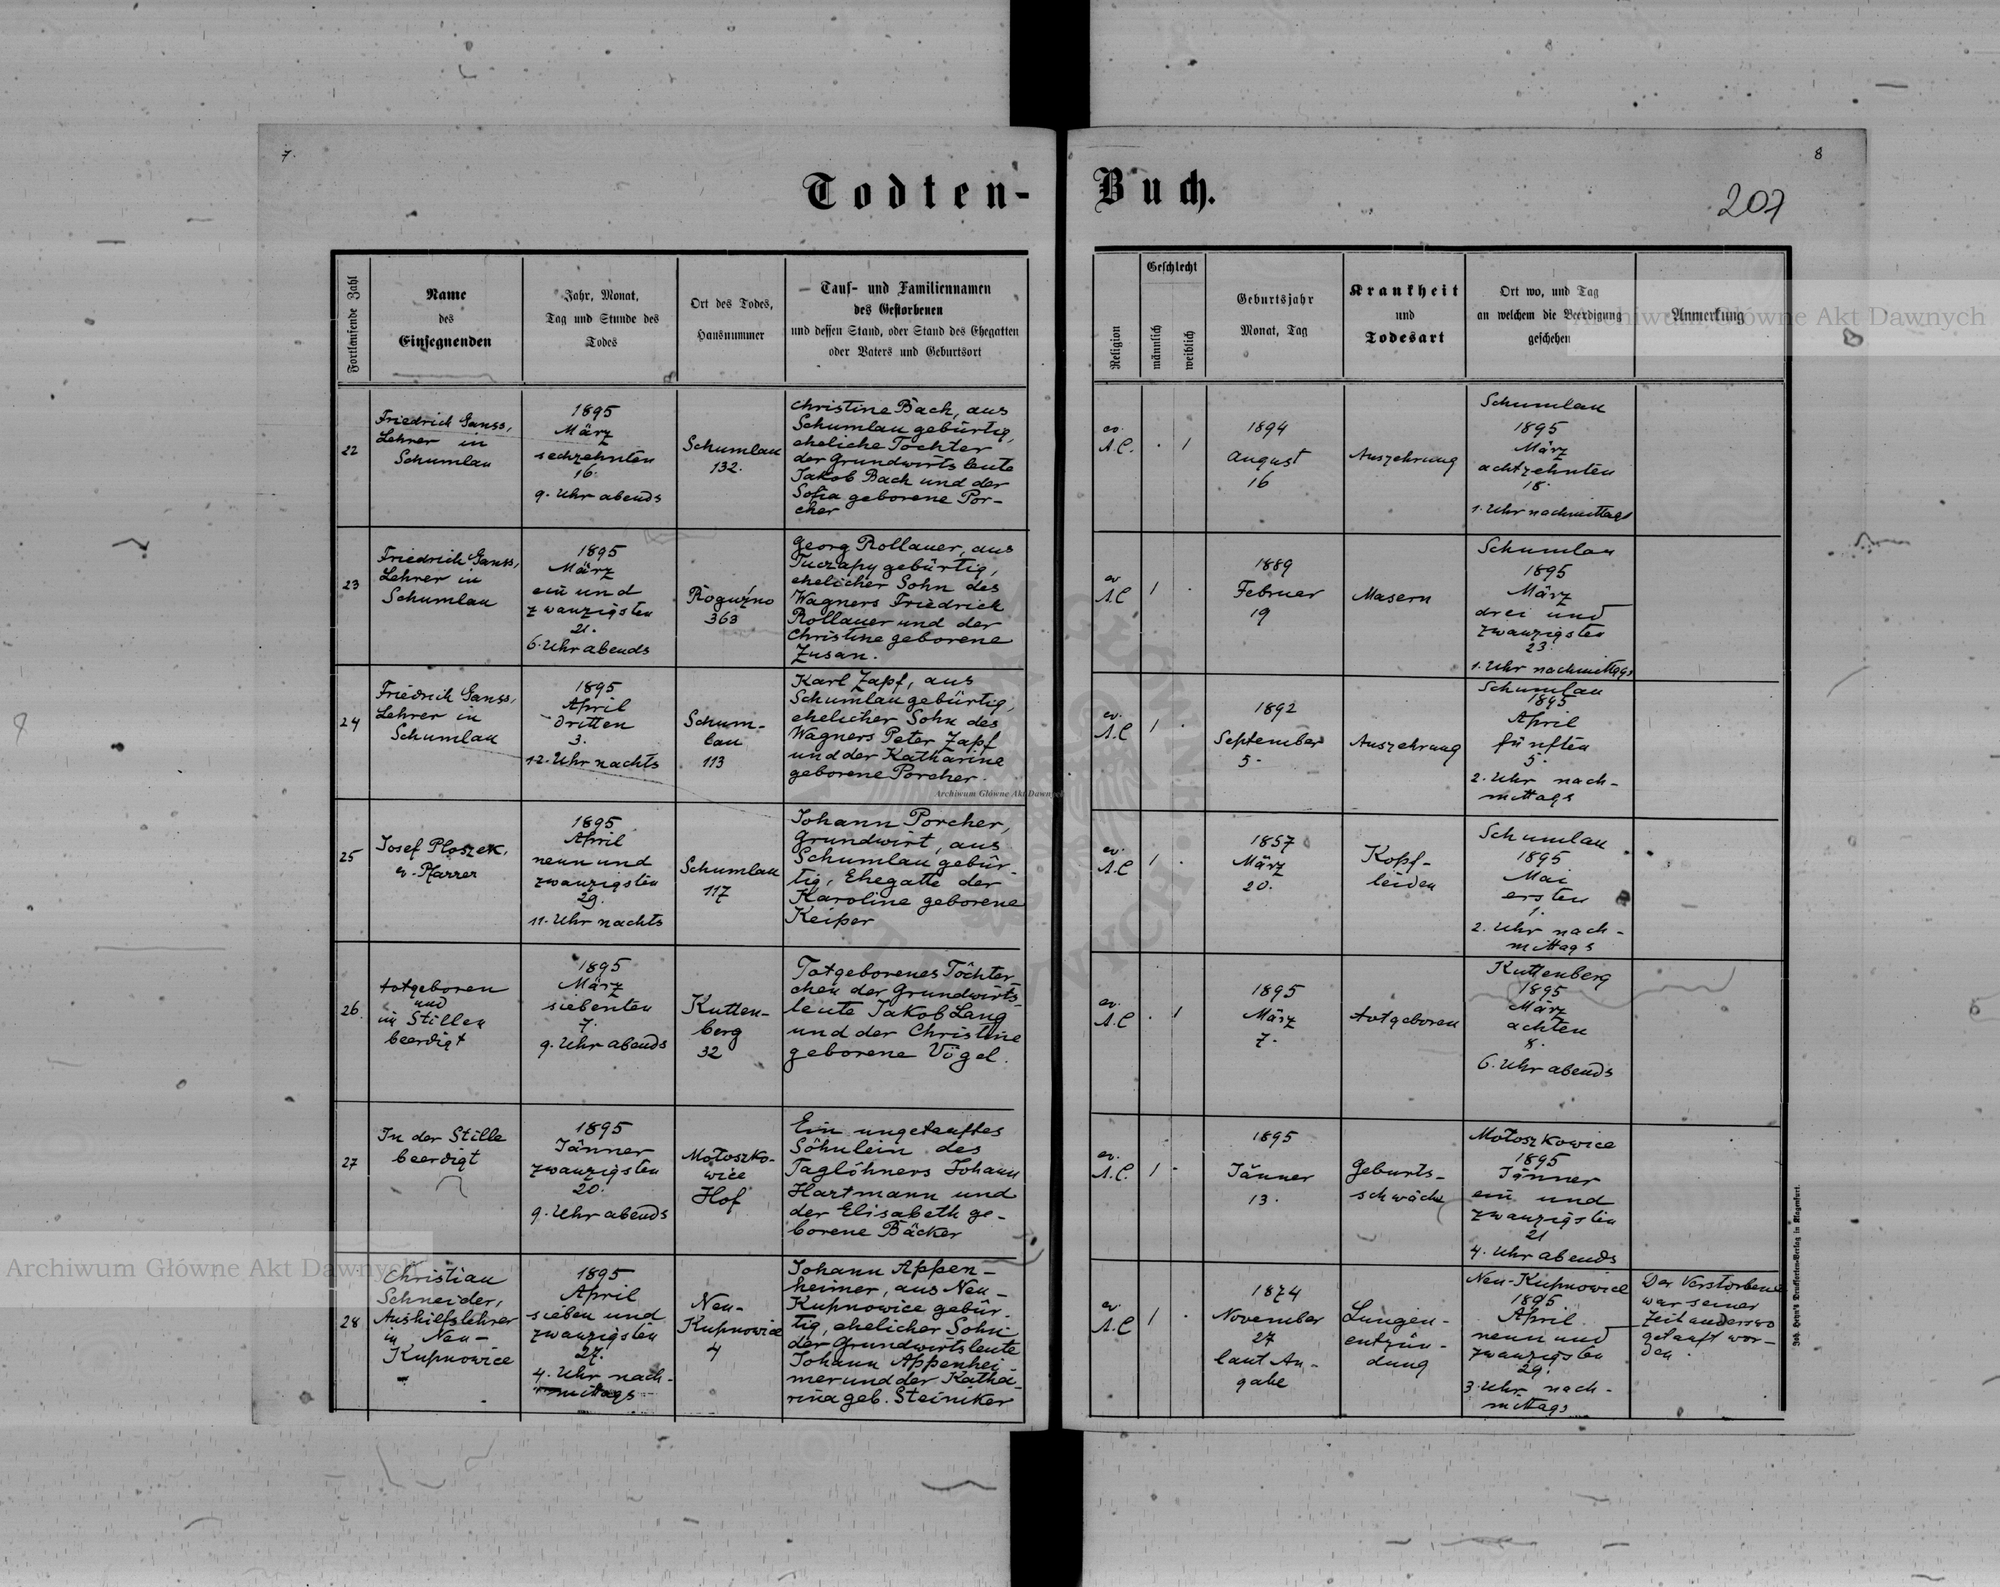 7.
8
Todten-Buch.
207
Fortlaufende Zahl
Name
des
Einsegnenden
Jahr, Monat,
Tag und Stunde des
Todes
Ort des Todes,
Hausnummer
Tauf- und Familiennamen
des Gestorbenen
und dessen Stand, oder Stand des Ehegatten
oder Vaters und Geburtsort
Religion
Geschlecht
männlich
weiblich
Geburtsjahr
Monat, Tag
Krankheit
und
Todesart
Ort wo, und Tag
an welchem die Beerdigung
geschehen
Anmerkung
22
Friedrich Ganss,
Lehrer in
Schumlau
1895
März
sechzehnten
16.
9. Uhr abends
Schumlau
132.
Christine Bach, aus
Schumlau gebürtig,
eheliche Tochter
der Grundwirtsleute
Jakob Bach und der
Sofia geborene Por-
cher
ev.
A.C.
. 1
1894
August
16
Auszehrung
Schumlau
1895
März
achtzehnten
18.
1. Uhr nachmittags
23
Friedrich Ganss,
Lehrer in
Schumlau
1895
März
ein und
zwanzigsten
21.
6. Uhr abends
Roguźno
363
Georg Rollauer, aus
Tuczapy gebürtig,
ehelicher Sohn des
Wagners Friedrich
Rollauer und der
Christine geborene
Zusan.
ev
A.C
1 .
1889
Februer
19
Masern
Schumlau
1895
März
drei und
zwanzigsten
23.
1. Uhr nachmittags
24
Friedrich Ganss,
Lehrer in
Schumlau
1895
April
dritten
3.
12. Uhr nachts
Schum-
lau
113
Karl Zapf, aus
Schumlau gebürtig,
ehelicher Sohn des
Wagners Peter Zapf
und der Katharine
geborene Porcher.
ev.
A.C
1 .
1892
September
5.
Auszehrung
Schumlau
1895
April
fünften
5.
2. Uhr nach-
mittags
25
Josef Ploszek,
ev. Pfarrer
1895
April
neun und
zwanzigsten
29.
11. Uhr nachts
Schumlau
117
Johann Porcher,
Grundwirt, aus
Schumlau gebür-
tig, Ehegatte der
Karoline geborene
Keiper
ev.
A.C
1 .
1857
März
20.
Kopf-
leiden
Schumlau
1895
Mai
ersten
1.
2. Uhr nach-
mittags
26.
totgeboren
und
im Stillen
beerdigt
1895
März
siebenten
7.
9. Uhr abends
Kutten-
berg
32
Totgeborenes Töchter
chen der Grundwirts-
leute Jakob Lang
und der Christine
geborene Vögel.
ev.
A.C
. 1
1895
März
7.
totgeboren
Kuttenberg
1895
März
achten
8.
6. Uhr abends
27
In der Stille
beerdigt
1895
Jänner
zwanzigsten
20.
9. Uhr abends
Mołoszko-
wice
Hof
Ein ungetauftes
Söhnlein des
Taglöhners Johann
Hartmann und
der Elisabeth ge-
borene Bäcker
ev.
A.C.
1 .
1895
Jänner
13.
Geburts-
schwäche
Mołoszkowice
1895
Jänner
ein und
zwanzigsten
21
4. Uhr abends
28
Christian
Schneider,
Aushilfslehrer
in Neu-
Kupnowice
1895
April
sieben und
zwanzigsten
27.
4. Uhr nach-
mittags
Neu-
Kupnowice
4
Johann Appen-
heimer, aus Neu-
Kupnowice gebür-
tig, ehelicher Sohn
der Grundwirtsleute
Johann Appenhei-
mer und der Katha-
rina geb. Steiniker
ev
A.C
1 .
1874
November
27
laut An-
gabe
Lungen-
entzün-
dung
Neu-Kupnowice
1895
April
neun und
zwanzigsten
29.
3. Uhr nach-
mittags
Der Verstorbene
war seiner
Zeit anderswo
getauft wor-
den.
Joh. Heyn's Drucksorten-Verlag in Klagenfurt.
Archiwum Główne Akt Dawnych
Archiwum Główne Akt Dawnych
Archiwum Główne Akt Dawnych